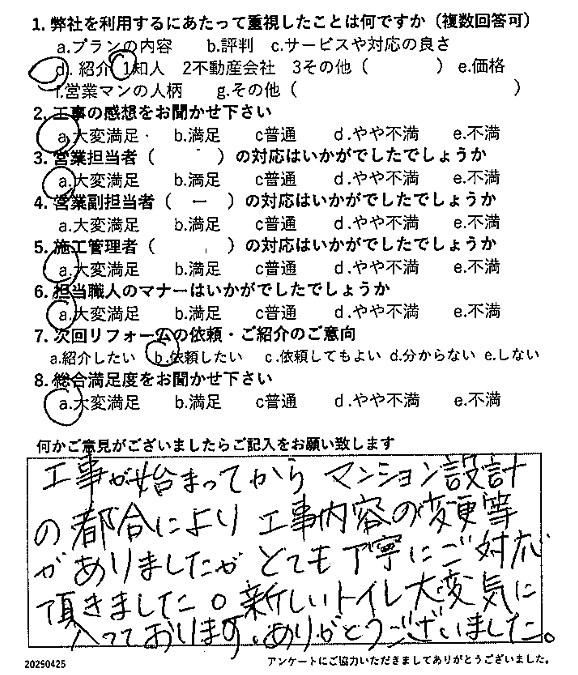 1. 弊社を利用するにあたって重視したことは何ですか（複数回答可）
a.プランの内容　b.評判　c.サービスや対応の良さ
d. 紹介　1知人　2不動産会社　3その他（　　　）e.価格
f.営業マンの人柄　g.その他（　　　）
2. 工事の感想をお聞かせ下さい
a.大変満足　b.満足　c普通　d.やや不満　e.不満
3. 営業担当者（　　　）の対応はいかがでしたでしょうか
a.大変満足　b.満足　c普通　d.やや不満　e.不満
4. 営業副担当者（　ー　）の対応はいかがでしたでしょうか
a.大変満足　b.満足　c普通　d.やや不満　e.不満
5. 施工管理者（　　　）の対応はいかがでしたでしょうか
a.大変満足　b.満足　c普通　d.やや不満　e.不満
6. 担当職人のマナーはいかがでしたでしょうか
a.大変満足　b.満足　c普通　d.やや不満　e.不満
7. 次回リフォームの依頼・ご紹介のご意向
a.紹介したい　b.依頼したい　c.依頼してもよい　d.分からない　e.しない
8. 総合満足度をお聞かせ下さい
a.大変満足　b.満足　c普通　d.やや不満　e.不満
何かご意見がございましたらご記入をお願い致します
工事が始まってから マンション設計
の都合により 工事内容の変更等
がありましたが とても丁寧にご対応
頂きました。新しいトイレ大変気に
入っております。ありがとうございました。
20290425　アンケートにご協力いただきましてありがとうございました。